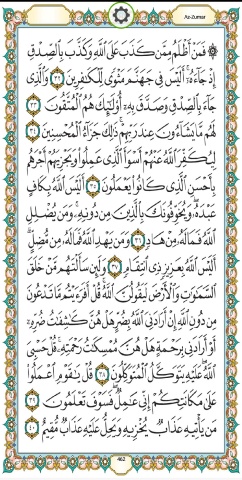 Az-Zumar
۞ فَمَنْ أَظْلَمُ مِمَّن كَذَبَ عَلَى ٱللَّهِ وَكَذَّبَ بِٱلصِّدْقِ
إِذْ جَآءَهُۥٓ ۚ أَلَيْسَ فِى جَهَنَّمَ مَثْوًى لِّلْكَـٰفِرِينَ ٣٢ وَٱلَّذِى
جَآءَ بِٱلصِّدْقِ وَصَدَّقَ بِهِۦٓ ۙ أُو۟لَـٰٓئِكَ هُمُ ٱلْمُتَّقُونَ ٣٣
لَهُم مَّا يَشَآءُونَ عِندَ رَبِّهِمْ ۚ ذَٰلِكَ جَزَآءُ ٱلْمُحْسِنِينَ ٣٤
لِيُكَفِّرَ ٱللَّهُ عَنْهُمْ أَسْوَأَ ٱلَّذِى عَمِلُوا۟ وَيَجْزِيَهُمْ أَجْرَهُم
بِأَحْسَنِ ٱلَّذِى كَانُوا۟ يَعْمَلُونَ ٣٥ أَلَيْسَ ٱللَّهُ بِكَافٍ
عَبْدَهُۥ ۖ وَيُخَوِّفُونَكَ بِٱلَّذِينَ مِن دُونِهِۦ ۚ وَمَن يُضْلِلِ
ٱللَّهُ فَمَا لَهُۥ مِنْ هَادٍ ٣٦ وَمَن يَهْدِ ٱللَّهُ فَمَا لَهُۥ مِن مُّضِلٍّ ۗ
أَلَيْسَ ٱللَّهُ بِعَزِيزٍ ذِى ٱنتِقَامٍ ٣٧ وَلَئِن سَأَلْتَهُم مَّنْ خَلَقَ
ٱلسَّمَـٰوَٰتِ وَٱلْأَرْضَ لَيَقُولُنَّ ٱللَّهُ ۚ قُلْ أَفَرَءَيْتُم مَّا تَدْعُونَ
مِن دُونِ ٱللَّهِ إِنْ أَرَادَنِىَ ٱللَّهُ بِضُرٍّ هَلْ هُنَّ كَـٰشِفَـٰتُ ضُرِّهِۦٓ
أَوْ أَرَادَنِى بِرَحْمَةٍ هَلْ هُنَّ مُمْسِكَـٰتُ رَحْمَتِهِۦ ۚ قُلْ حَسْبِىَ
ٱللَّهُ ۖ عَلَيْهِ يَتَوَكَّلُ ٱلْمُتَوَكِّلُونَ ٣٨ قُلْ يَـٰقَوْمِ ٱعْمَلُوا۟
عَلَىٰ مَكَانَتِكُمْ إِنِّى عَـٰمِلٌ ۖ فَسَوْفَ تَعْلَمُونَ ٣٩
مَن يَأْتِيهِ عَذَابٌ يُخْزِيهِ وَيَحِلُّ عَلَيْهِ عَذَابٌ مُّقِيمٌ ٤٠
462